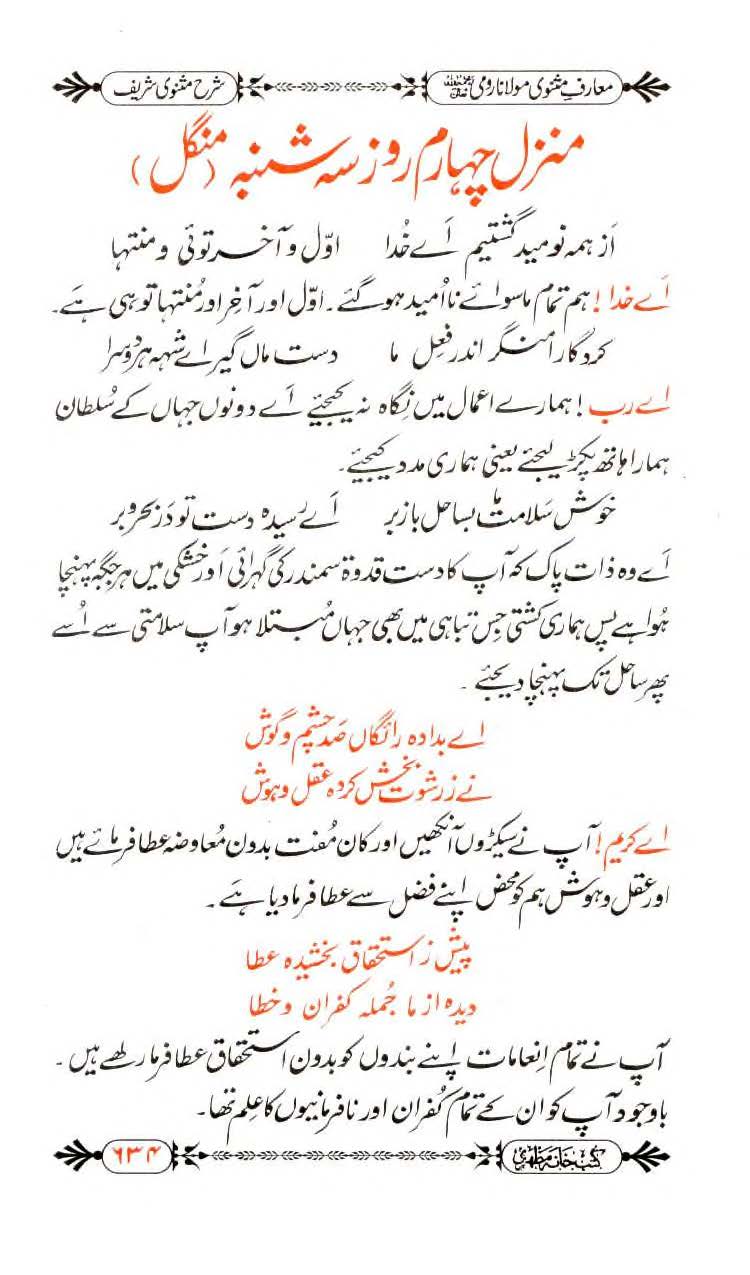 معارفِ مثنوی مولانا رومیؒ
شرح مثنوی شریف
منزل چہارم روز سہ شنبہ (منگل)
اَز ہمہ نومید گشتیم اَے خُدا اوّل و آخر توئی و منتہا
اَے خدا! ہم تمام ماسوائے نااُمید ہوگئے۔ اوّل اور آخِر اور مُنتہا تو ہی ہَے۔
کردگارا منگر اندر فعِل ما دست ماں گیر اے شہہ ہر دوسرا
اے رب! ہمارے اعمال میں نِگاہ نہ کیجیئے اَے دونوں جہاں کے سُلطان
ہمارا ہاتھ پکڑ لیجئے یعنی ہماری مدد کیجیئے۔
خوش سَلامت ما بساحل باز بر اَے رسیدہ دست تو دَر بحر و بر
اَے وہ ذات پاک کہ آپ کا دست قدوۃ سمندر کی گہرائی اَور خشکی میں ہر جگہ پہنچا
ہُوا ہے پس ہماری کشتی جس تباہی میں بھی جہاں مُبتلا ہو آپ سلامتی سے اُسے
پھر ساحل تک پہنچا دیجئے ۔
اے بدادہ رائگاں صَد چشم و گوش
نے ز رشوت بخش کردہ عقل و ہوش
اے کریم! آپ نے سیکڑوں آنکھیں اور کان مُفت بدون مُعاوضہ عطا فرمائے ہیں
اور عقل و ہوش ہم کو محض اپنے فضل سے عطا فرما دیا ہَے ۔
پیش ز استحقاق بخشیدہ عطا
دیدہ از ما جُملہ کفران و خطا
آپ نے تمام اِنعامات اپنے بندوں کو بدون استحقاق عطا فرما رکھے ہیں ۔
باوجود آپ کو ان کے تمام کُفران اور نافرمانیوں کا عِلم تھا۔
کتب خانہ مظہری
۶۳۴